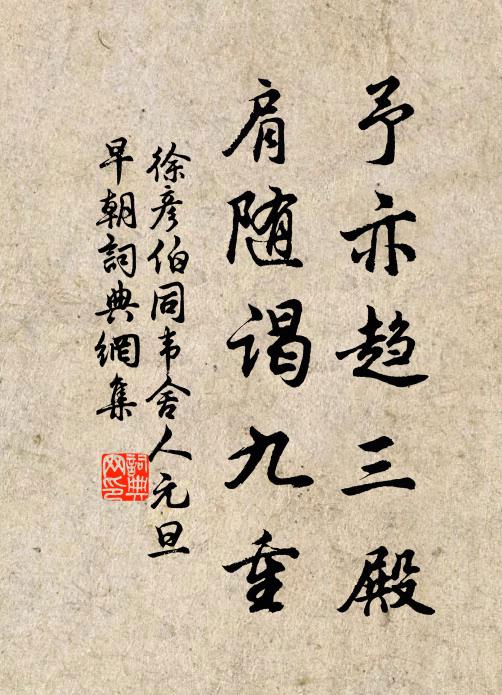 予亦趋三殿
肩随谒九重
徐彦伯同韦舍人元旦
早朝詞典網集
詞典网印